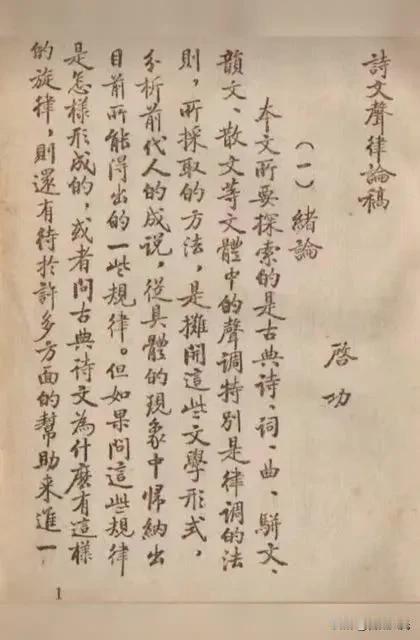 詩文聲律論稿
啓功
(一) 緒論
本文所要探索的是古典詩、詞、曲、駢文、
韻文、散文等文體中的聲調特別是律調的法
則，所採取的方法，是攤開這些文學形式，
分析前代人的成說，從具體的現象中歸納出
目前所能得出的一些規律。但如果問這些規律
是怎樣形成的，或者問古典詩文為什麼有這樣
的旋律，則還有待於許多方面的幫助来進一
1